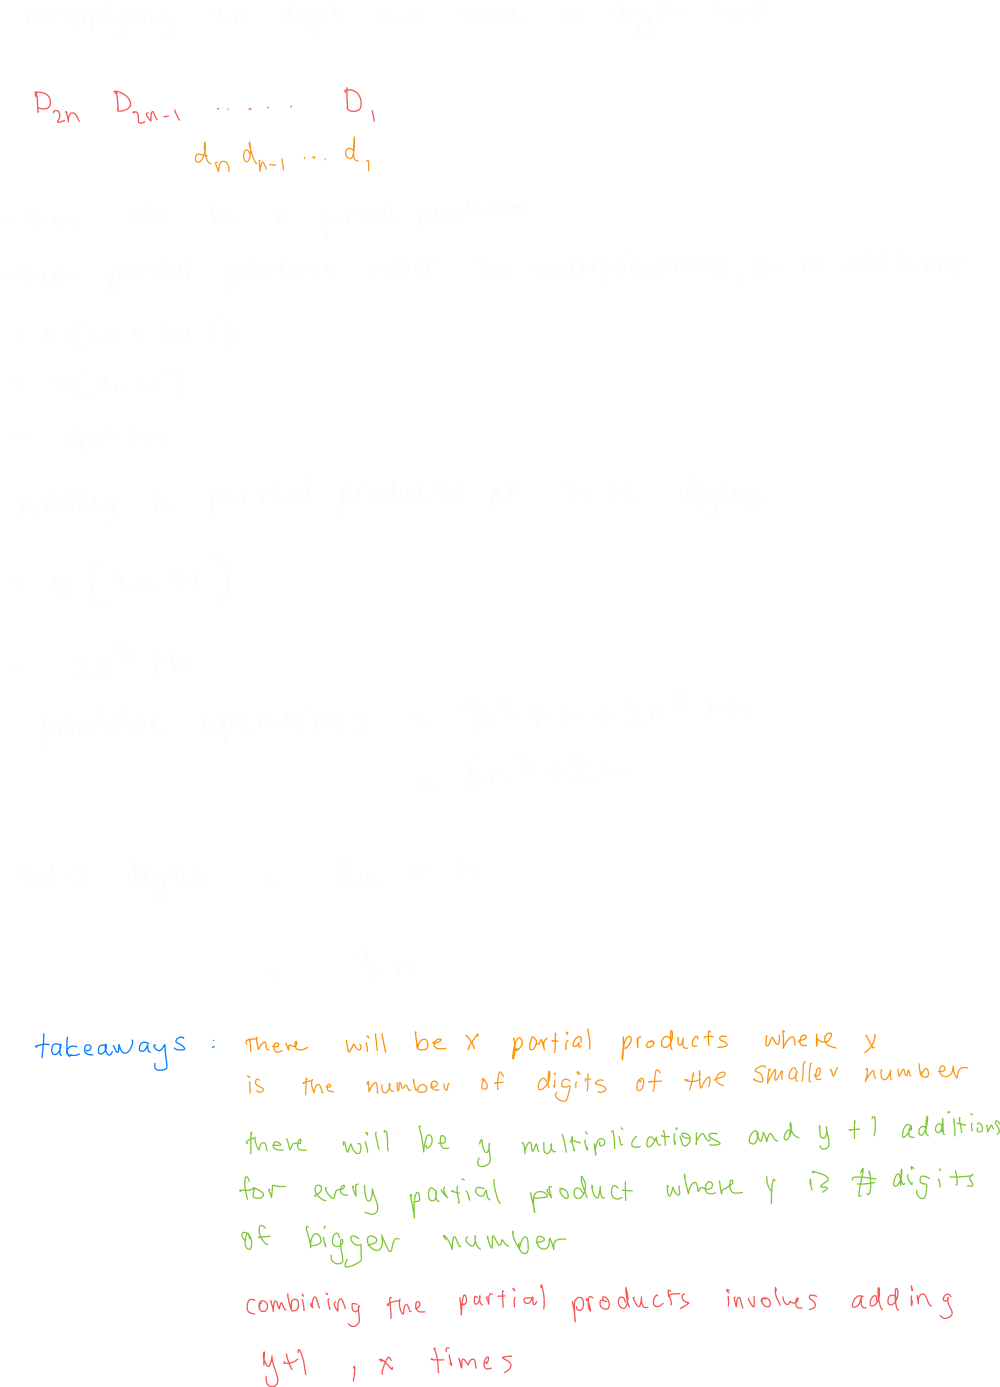 multiplying 2n digit int and n digit int
D₂ₙ D₂ₙ₋₁ ..... D₁
dₙ dₙ₋₁ ... d₁
- there will be n partial products
- each partial product takes 2n multiplications, 2n+1 additions
= n(2n + 2n+1)
= n(4n+1)
= 4n² + n
adding n partial products of 2n+1 digits
= n(2n+1)
= 2n² + n
primitive operations = 4n² + n + 2n² + n
= 6n² + 2n
total digits = 2n + n
= 3n
takeaways : there will be x partial products where x
is the number of digits of the smaller number
there will be y multiplications and y +1 additions
for every partial product where y is # digits
of bigger number
combining the partial products involves adding
y+1 , x times